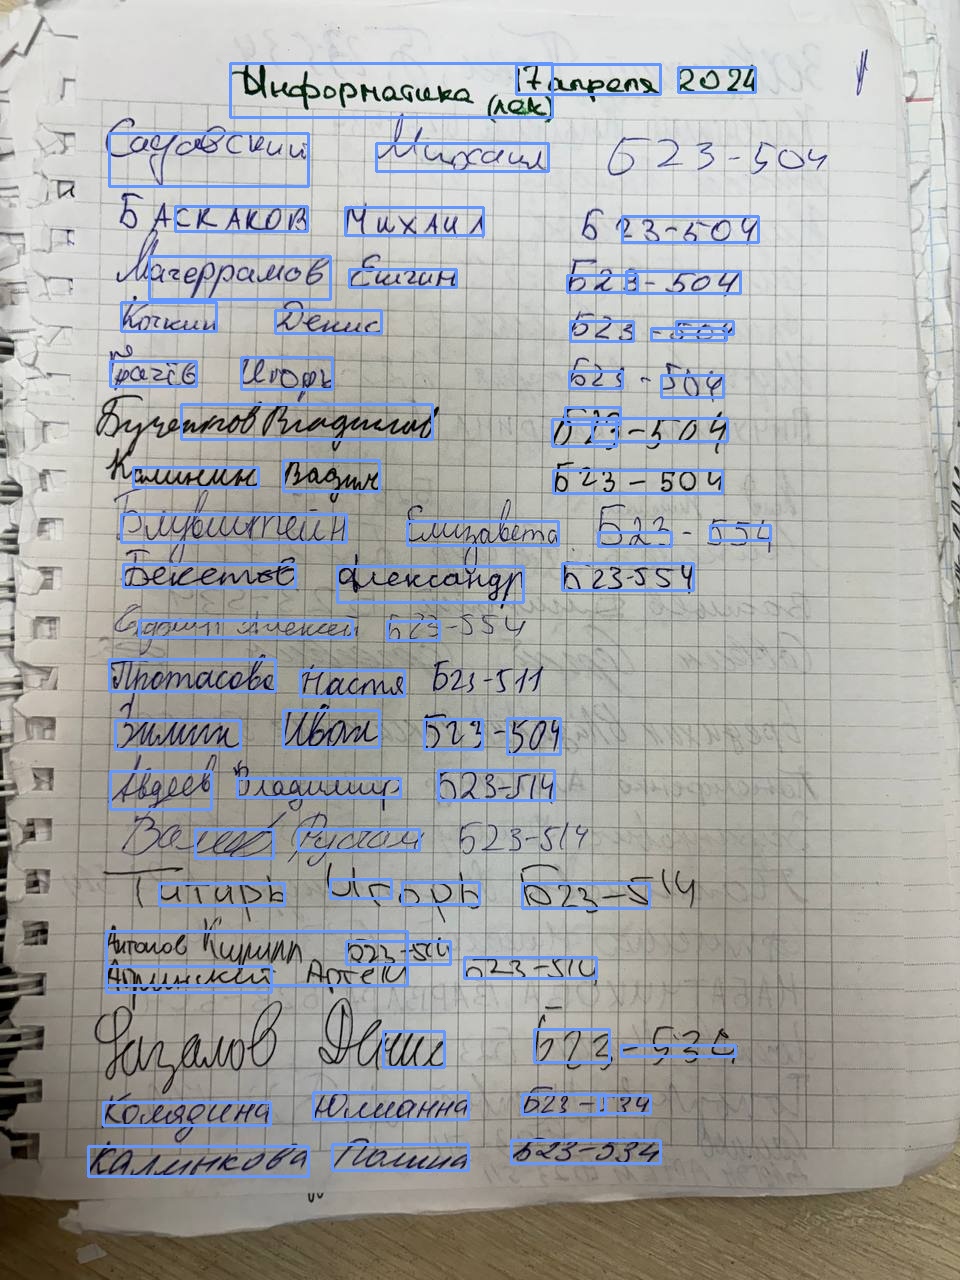 Информатика (лек) 17 апреля 2024
Садовский Михаил Б23-504
БАСКАКОВ МИХАИЛ Б23-504
Магеррамов Ельчин Б23-504
Кочкин Денис Б23-504
Грачёв Игорь Б23-504
Владислав Б23-504
Калинин Вадим Б23-504
Блувштейн Елизавета Б23-554
Бекетов Александр Б23-554
Алексей Б23-554
Протасова Настя Б23-511
Зимин Иван Б23-504
Авдеев Владимир Б23-514
Валиев Рустам Б23-514
Титирь Игорь Б23-514
Антонов Кирилл Б23-514
Артём Б23-514
Низамов Денис Б23-534
Колядина Юлианна Б23-534
Калинкова Полина Б23-534